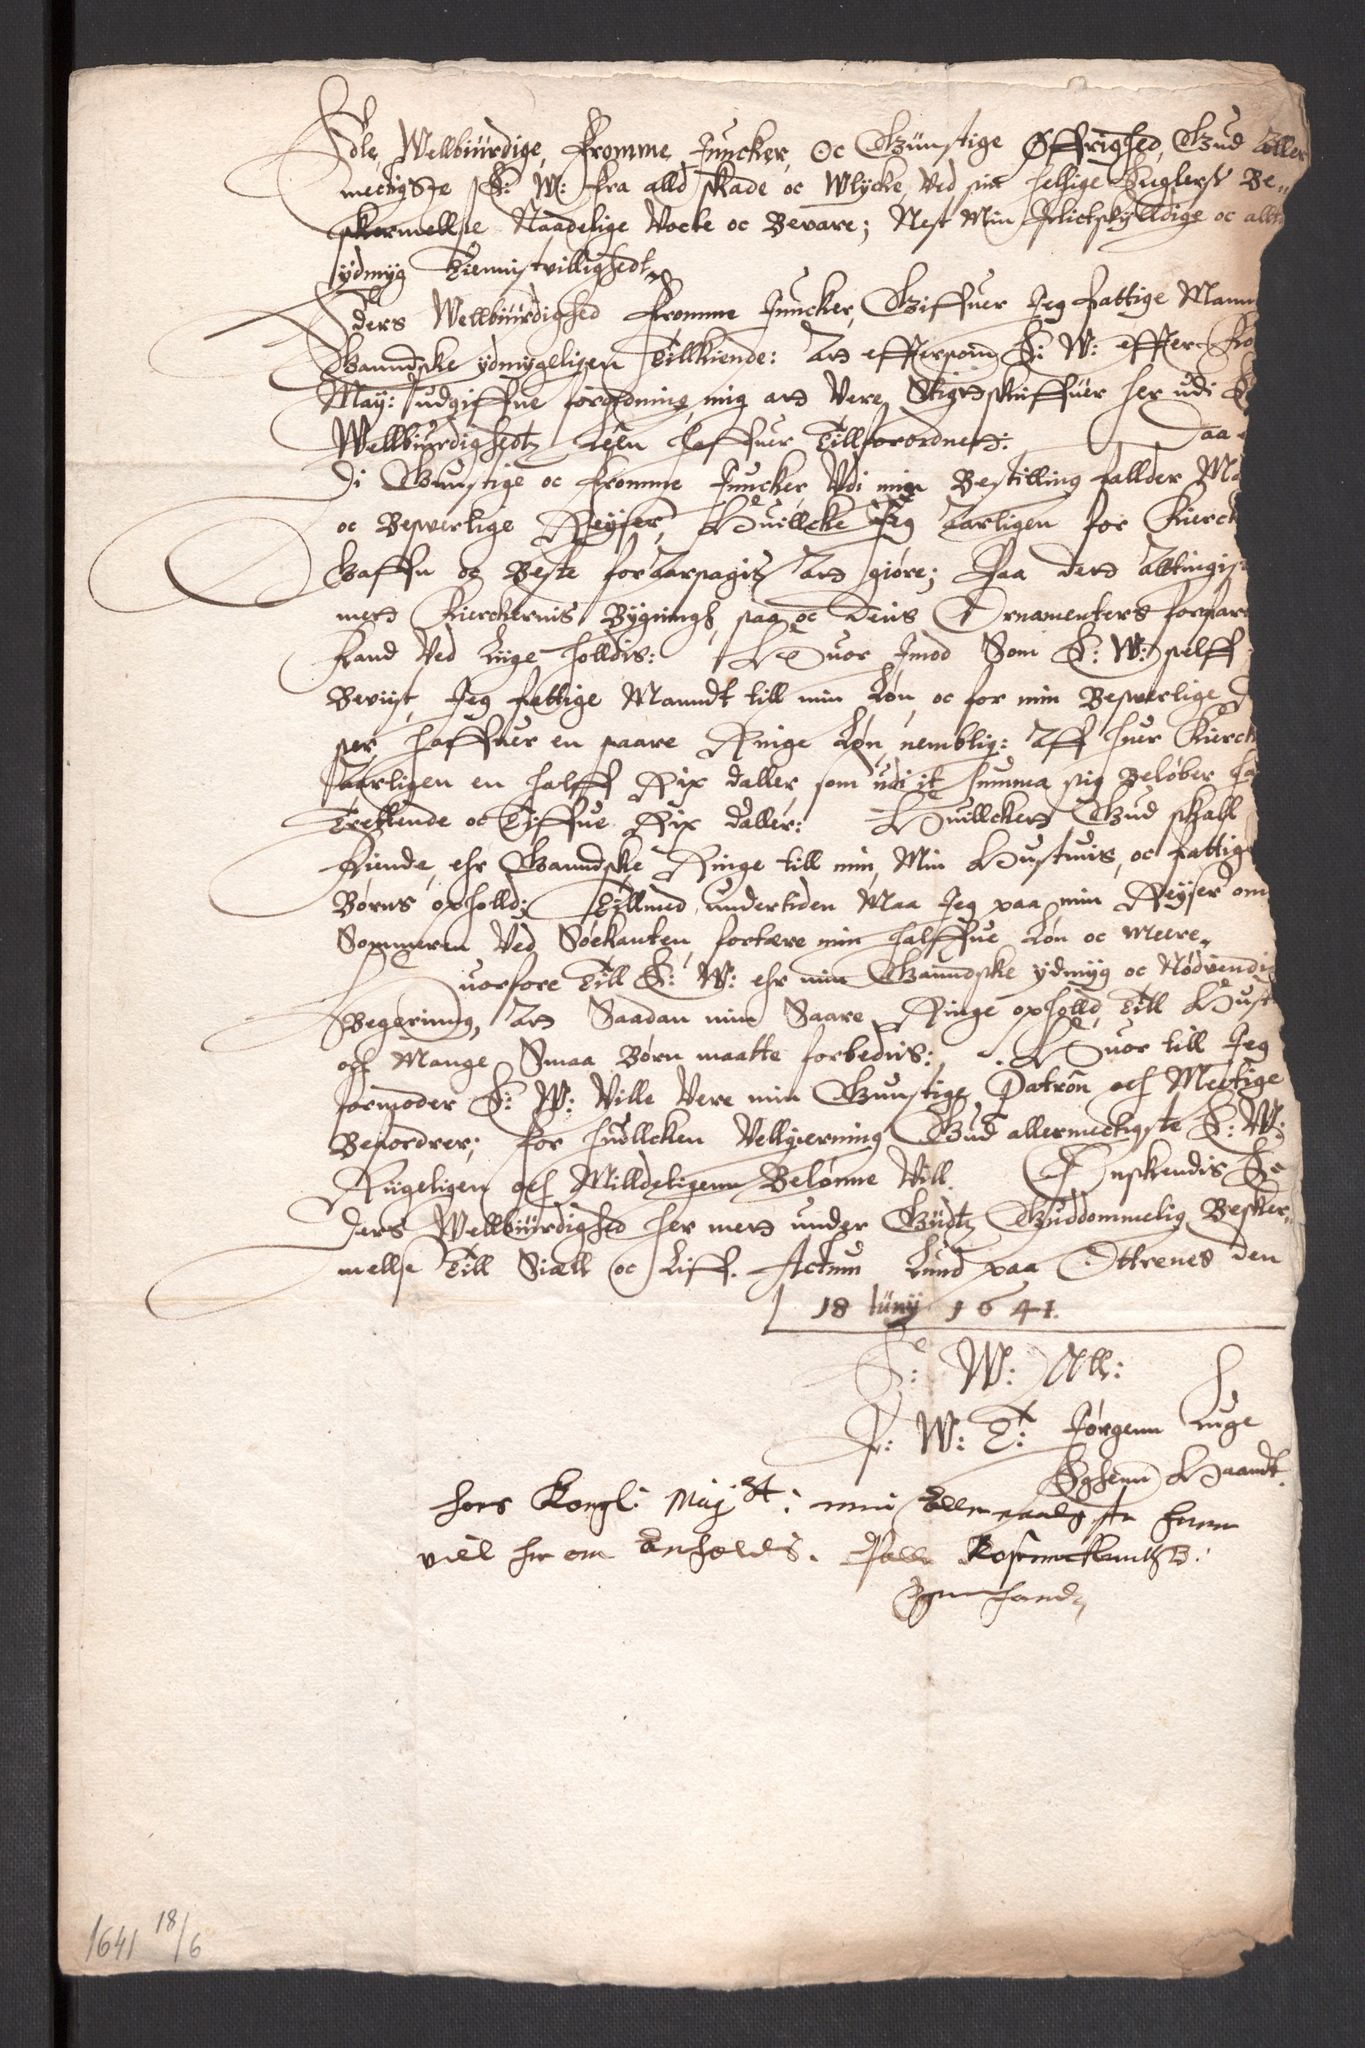 Edle, Wellbiürdige, fromme Juncker, Oc Günstige Øffrighed, Gud Aller
mectigste E: W: fra alld skade oc Wlycke, Ved sin hellige Englers Be-
skermellse Naadelige Vocte oc Bevare; Nest Min Plictskylldige oc allt
ydmyg Tiennistvillighedt
Eders Wellbiürdighed fromme Juncker, Giffuer Jeg fattige Mann
Ganndske ydmygeligen Tillkiende: At effttersom E: W: effter Ko
May: udgiffne forordning, mig at Vere Stigtskriffuer her udi E
Wellbiurdighedtz Leen haffuer Tillforordnett: Daa
Di Gunstige oc fromme Juncker, Udi min Bestilling fallder Ma
oc Besverlige Reyser, Huillcke Jeg Aarligen for Kierck
Gaffn oc Beste foraarsagis At giøre; Paa det Allting
med Kierckernis Bygning, saa oc dens Ornamenters forvar
kand Ved Liige holldis: Huor Jmod Som E: W: self
Bevist, Jeg fattige Manndt till min Løn, oc for min Besverlige
ser, haffuer en saare Ringe Løn, nemblig: Aff huer Kierck
Aarligen en halff Rix daller, som udi it summa sig Beløber
Trettende oc Tiffue Rix daller: Huillcket Gud skall
kiende, ehr Ganndske Ringe till min, Min Hustruis, oc fattige
Børns opholld; Tillmed undertiden Maa Jeg paa min Reyser om
Sommeren Ved Søekanten, fortære min halffue Løn oc Meere
Huorfore Till E: W: ehr min Ganndske ydmyg oc Nødvendig
Begering, At Saadan min Saare Ringe opholld, Till Hustr
och Mange Smaa Børn maatte forbedris: Huor till Jeg
formoder E: W: Ville Vere min Gunstige Patron och Mectige
Befordrer; for huillcken Vellgierning Gud allermectigste E: W:
Riigeligen och Milldeligenn Belønne Vill. Ønskendis E
ders Wellbiurdighed her med under Gudtz Guddommelig Besker-
mellse Till Siæll oc Liff. Actum Lund paa Ottrenes den
18 Junij 1641.
E: W: Alt:
P: W: T: Jørgenn Luge
Eghenn Haandt
hoes Kongl: May^st: min Allernaadigste herre
viell her om Anholdes. Palle Rosenkrantz
Egen hand
1641 18/6